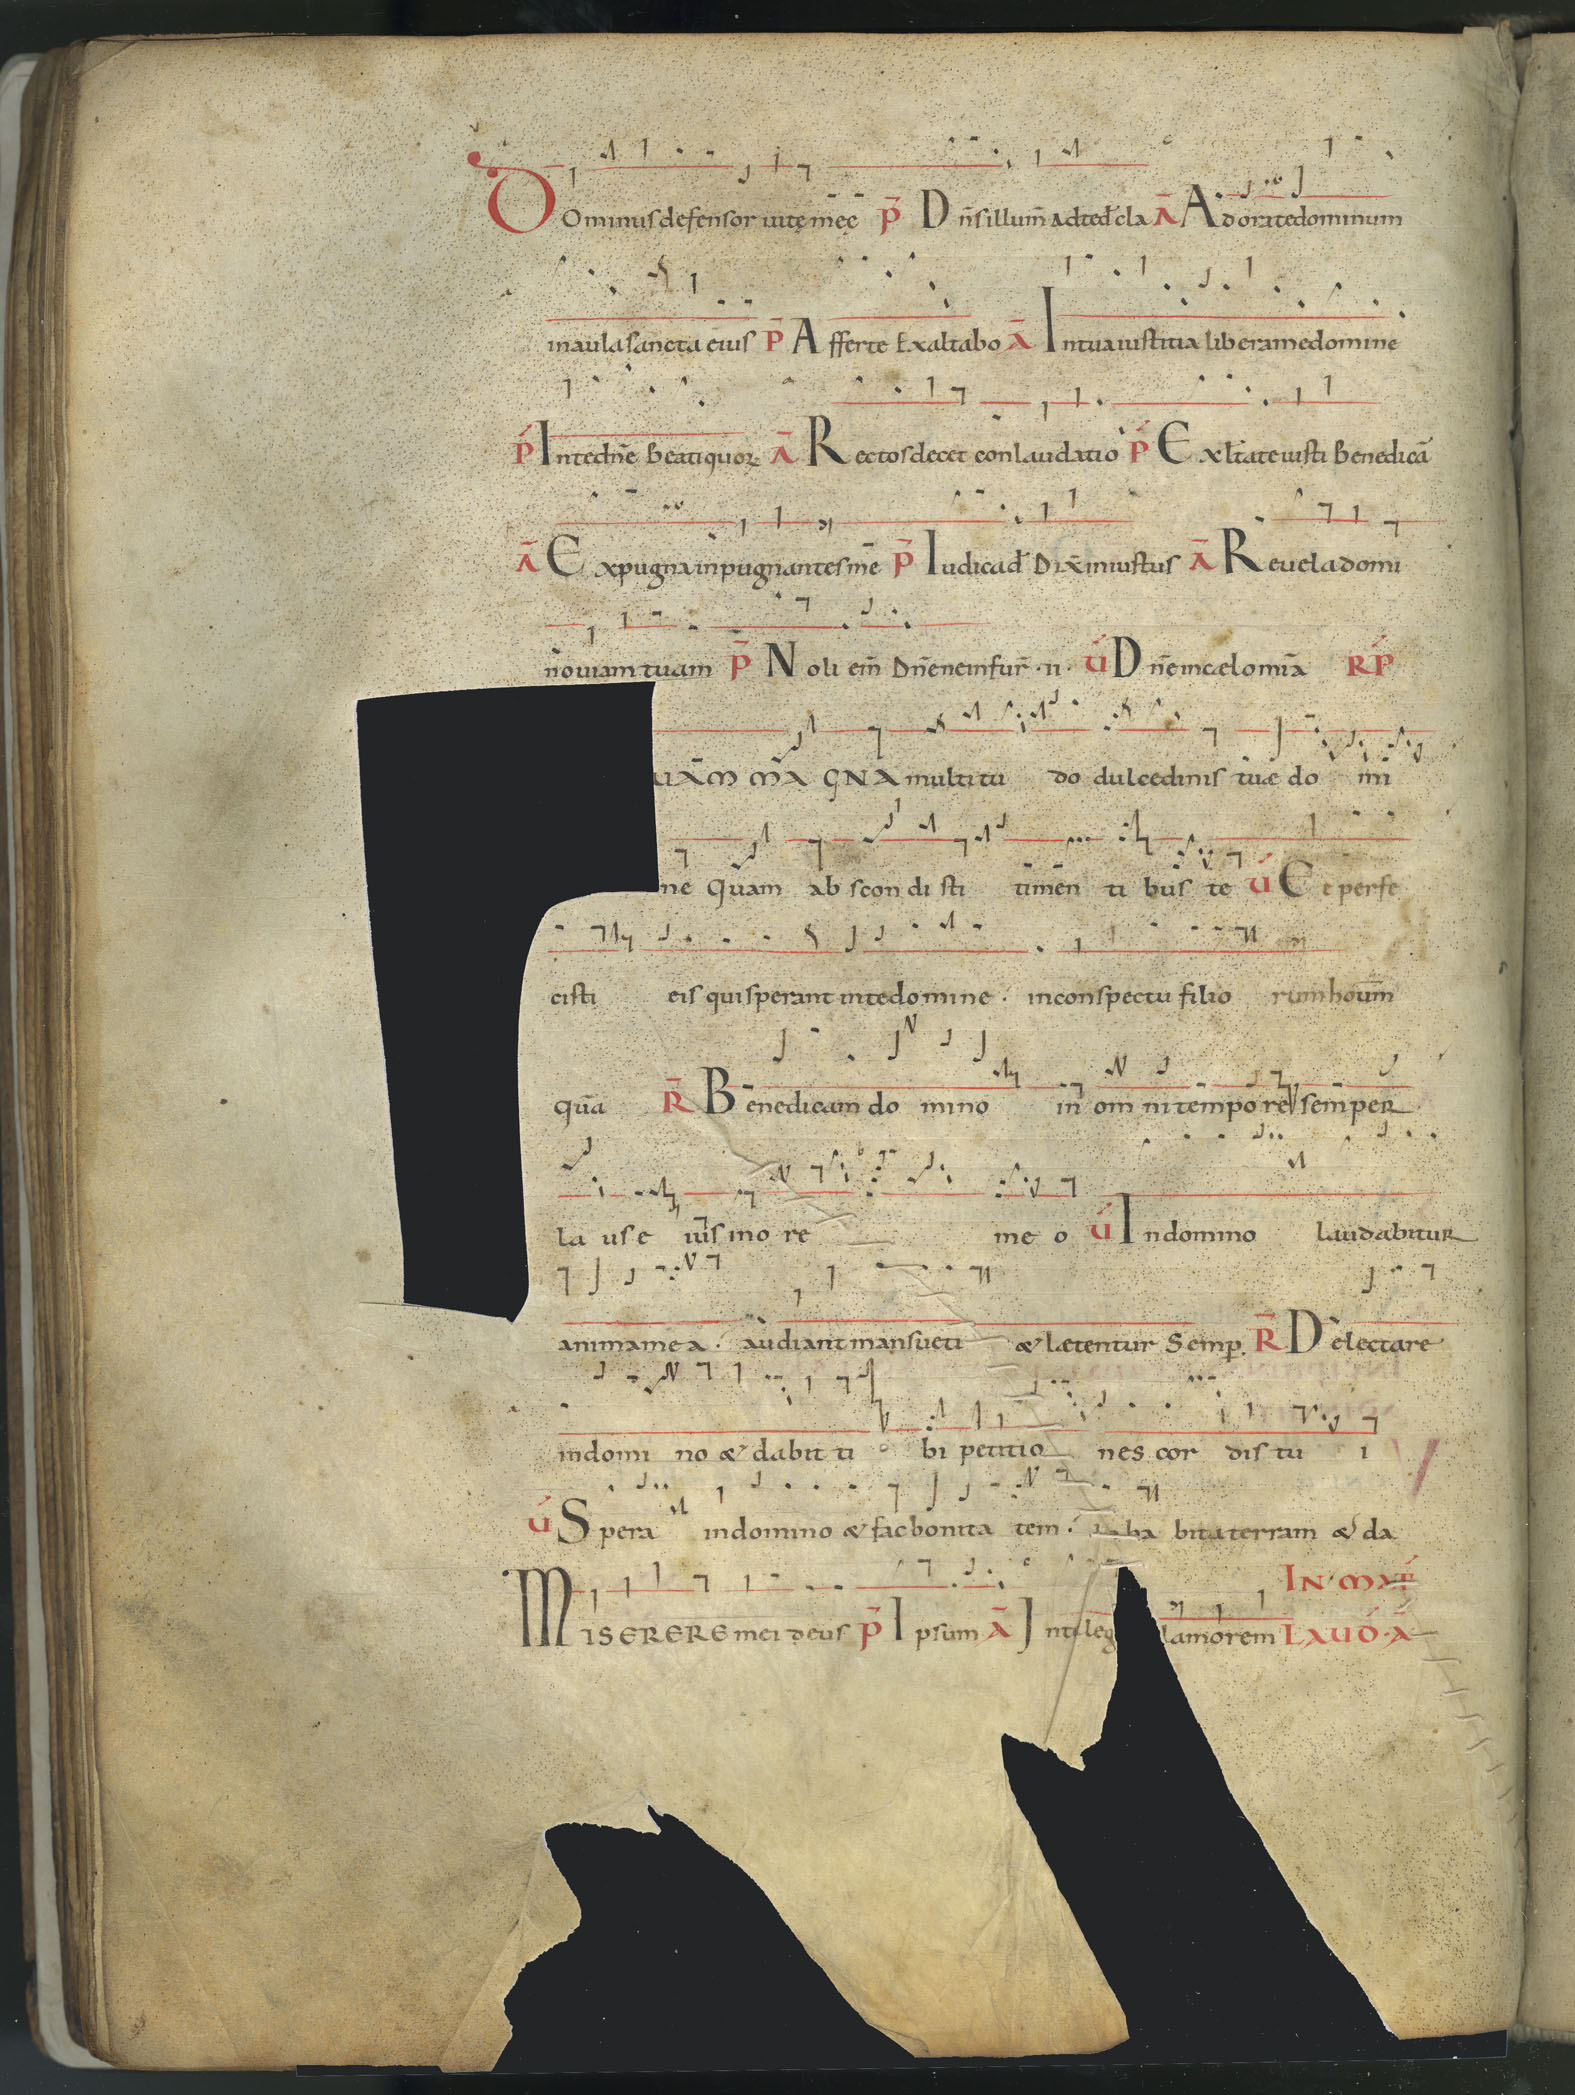 DOminus defensor uitę meę P Dn̄s illum̄ Ad te d̄ cla A Adorate dominum
in aula sancta eius P Afferte Exaltabo A In tua iustitia libera me domine
P In te dn̄e Beati quoꝝ A Rectos decet conlaudatio P Exltate iusti Benedicā
A Expugna inpugnantes me P Iudica d̄ Dix̄ iniustus A Reuela domi
no uiam tuam P Noli em̄ Dn̄e ne in fur̄ ·II· V Dn̄e in caelo mīa RP
UAM MAGNA multitu do dulcedinis tuae do mi
ne Quam abscondisti timen ti bus te V Et perfe
cisti eis qui sperant in te domine · in conspectu filio rum houm̄
quā R Benedicam do mino in omni tempore semper
la us e ius in o re me o V In domino laudabitur
anima mea · audiant mansueti & laetentur Semp̄ R Delectare
in domi no & dabit ti bi petitio nes cor dis tu i
V Spera in domino & fac bonita tem · in ha bita terram & da
IN MAT
MISERERE mei deus P Ipsum A Intelleg lamorem LAUD · A